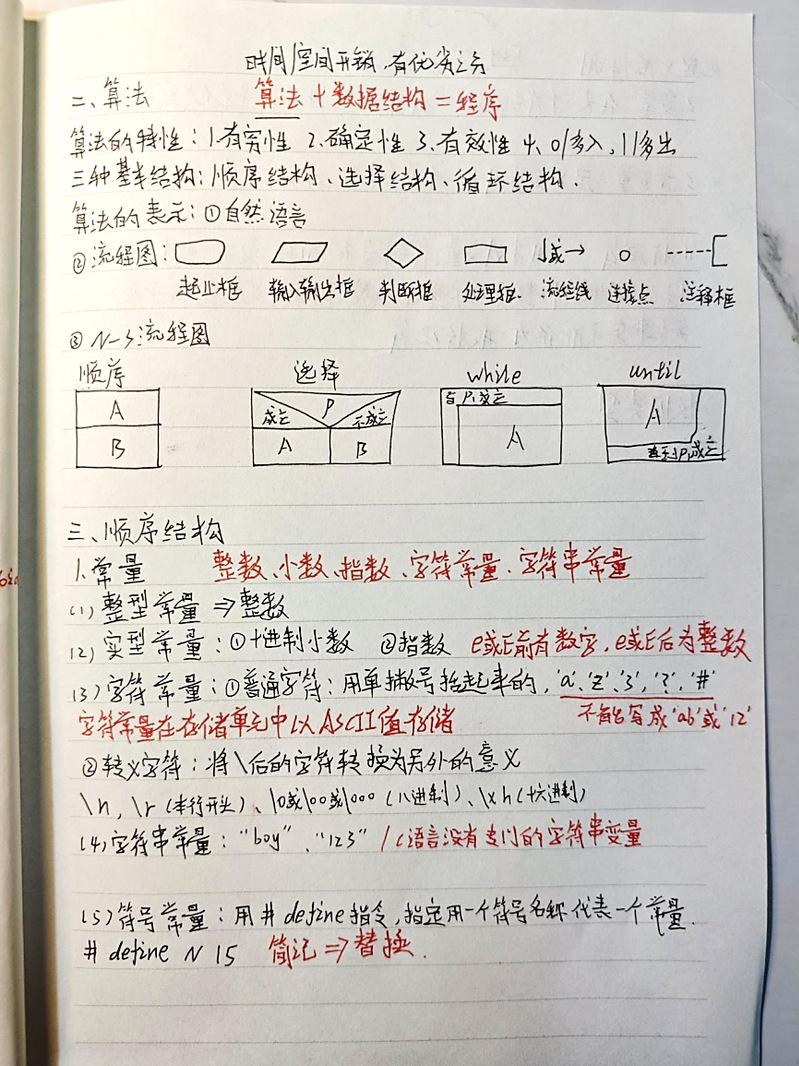 时间/空间开销 有优劣之分
二、算法 算法+数据结构=程序
算法的特性：1.有穷性 2.确定性 3.有效性 4、0/多入、1/多出
三种基本结构：顺序结构、选择结构、循环结构.
算法的表示：①自然语言
②流程图： ↓或→
起止框 输入输出框 判断框 处理框 流程线 连接点 注释框
③ N-S流程图
顺序 选择 while until
A P 成立 不成立 当P1成立 A
B A B A 直到P1成立
三、顺序结构
1.常量 整数、小数、指数、字符常量、字符串常量
(1) 整型常量 ⇒ 整数
(2) 实型常量：①十进制小数 ②指数 e或E前有数字，e或E后为整数
(3) 字符常量：①普通字符：用单撇号括起来的，'a'、'Z'、'3'、'?'、'#'
字符常量在存储单元中以ASCII值存储 不能写成'ab'或'12'
②转义字符：将\后的字符转换为另外的意义
\n, \r (本行开头)、\o或\oo或\ooo (八进制)、\xh (十六进制)
(4) 字符串常量："boy"、"123" / C语言没有专门的字符串变量
(5) 符号常量：用 # define 指令，指定用一个符号名称代表一个常量.
# define N 15 简记 ⇒ 替换.